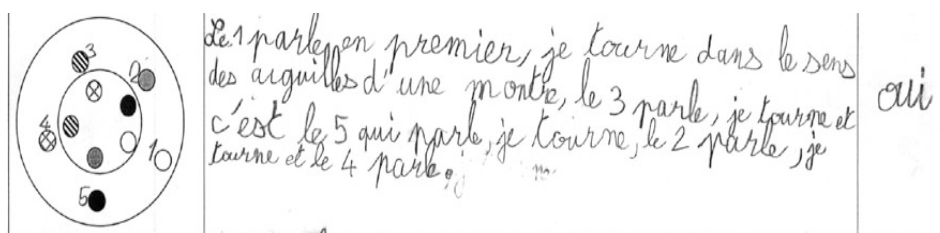 3
2
4
1
5
Le 1 parle en premier, je tourne dans le sens
des aiguilles d'une montre, le 3 parle, je tourne et
c'est le 5 qui parle, je tourne, le 2 parle, je
tourne et le 4 parle.
oui